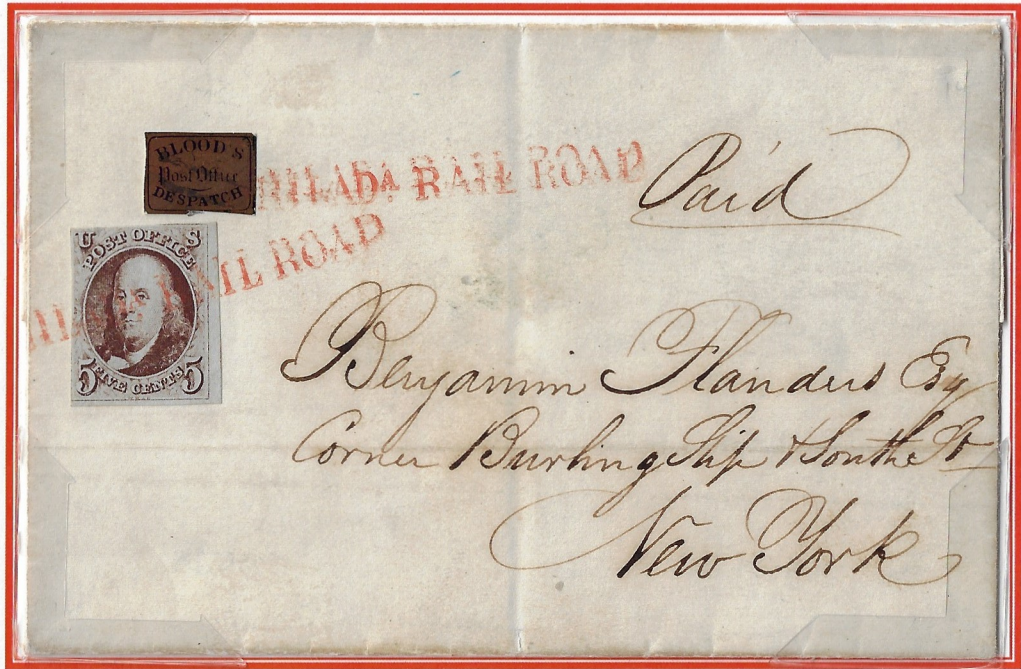 BLOOD'S
Post Office
DESPATCH
PHILADA RAIL ROAD
Paid
U S
POST OFFICE
RAIL ROAD
FIVE CENTS
5 5
Benjamin Flanders Esq
Corner Burling Slip & South St
New York